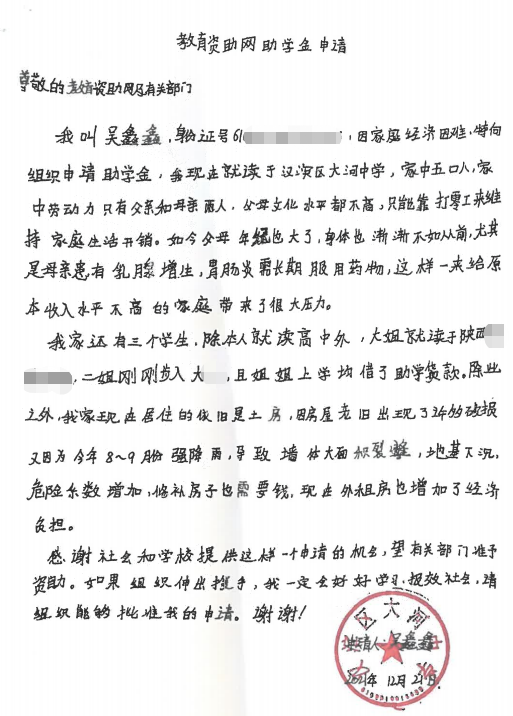 教育资助网助学金申请
尊敬的教育资助网及有关部门
我叫吴鑫鑫,身份证号61,因家庭经济困难,特向
组织申请助学金,我现在就读于汉滨区大河中学,家中五口人,家
中劳动力只有父亲和母亲两人,父母文化水平都不高,只能靠打零工来维
持家庭生活开销。如今父母年纪也大了,身体也渐渐不如从前,尤其
是母亲患有乳腺增生,胃肠炎需长期服用药物,这样一来给原
本收入水平不高的家庭带来了很大压力。
我家还有三个学生,除本人就读高中外,大姐就读于陕西
,二姐刚刚步入大,且姐姐上学均借了助学贷款。除此
之外,我家现在居住的依旧是土房,因房屋老旧出现了许多破损
又因为今年8~9月份强降雨,导致墙体大面积裂缝,地基下沉,
危险系数增加,修补房子也需要钱,现在外租房也增加了经济
负担。
感谢社会和学校提供这样一个申请的机会,望有关部门准予
资助。如果组织伸出援手,我一定会好好学习,报效社会,请
组织能够批准我的申请。谢谢!
申请人:吴鑫鑫
2021年12月21日
区大河中